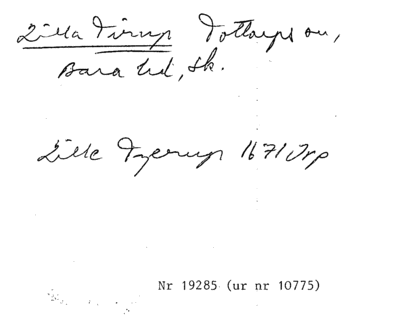 Lilla Tirup Tottarps sn,
Bara hd, Sk.
Lille Tyerup 1671 Jrp
Nr 19285 (ur nr 10775)